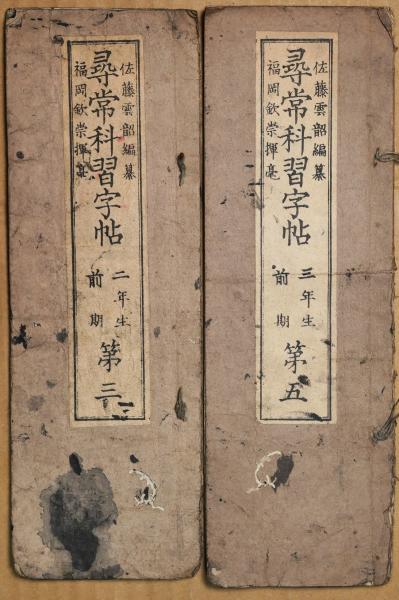 佐藤雲韶編纂
尋常科習字帖
福岡欽崇揮毫
二年生
前期
第三
佐藤雲韶編纂
尋常科習字帖
福岡欽崇揮毫
三年生
前期
第五